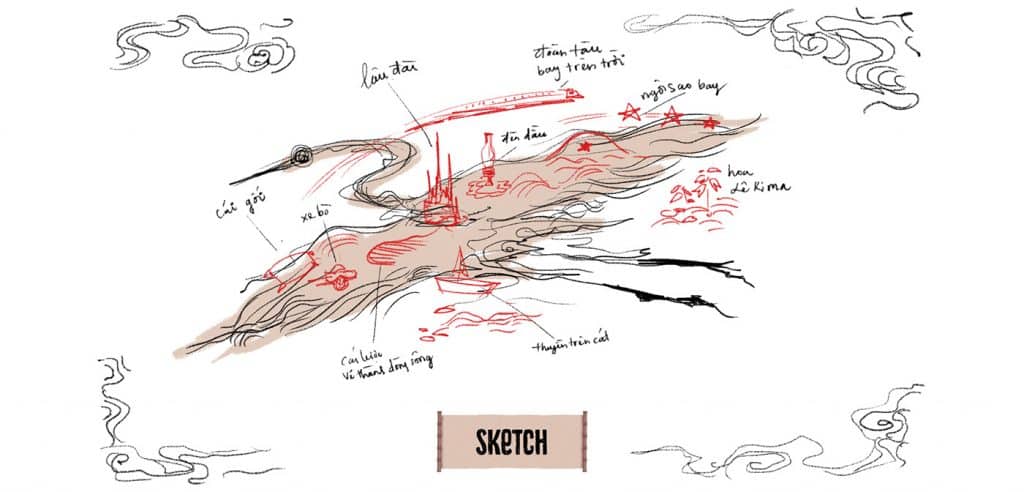 đoàn tàu
bay trên trời
lâu đài
ngôi sao bay
đèn dầu
hoa
Lê Kima
cái gối
xe bò
cái lược
vẽ thành dòng sông
thuyền trên cát
SKETCH